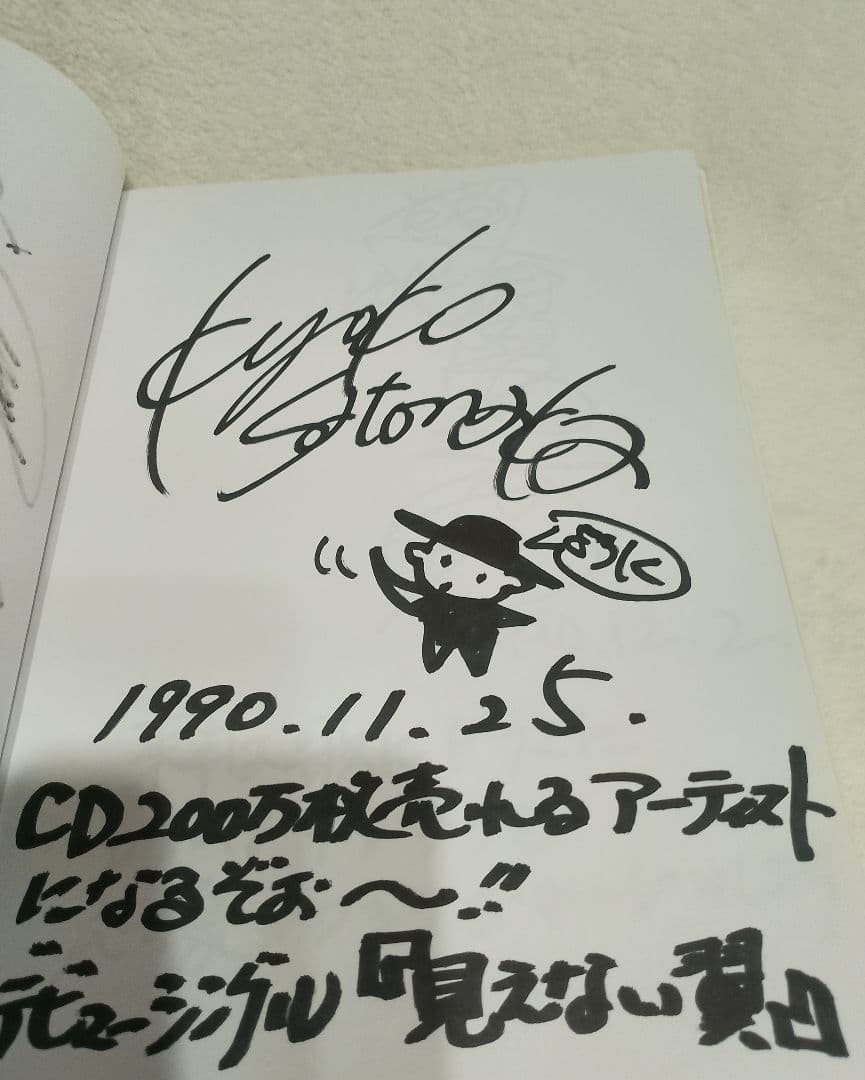 Kyoko
Satonaka
ように
1990.11.25.
CD200万枚売れるアーティスト
になるぞぉ〜!!
デビューシングル『見えない翼』